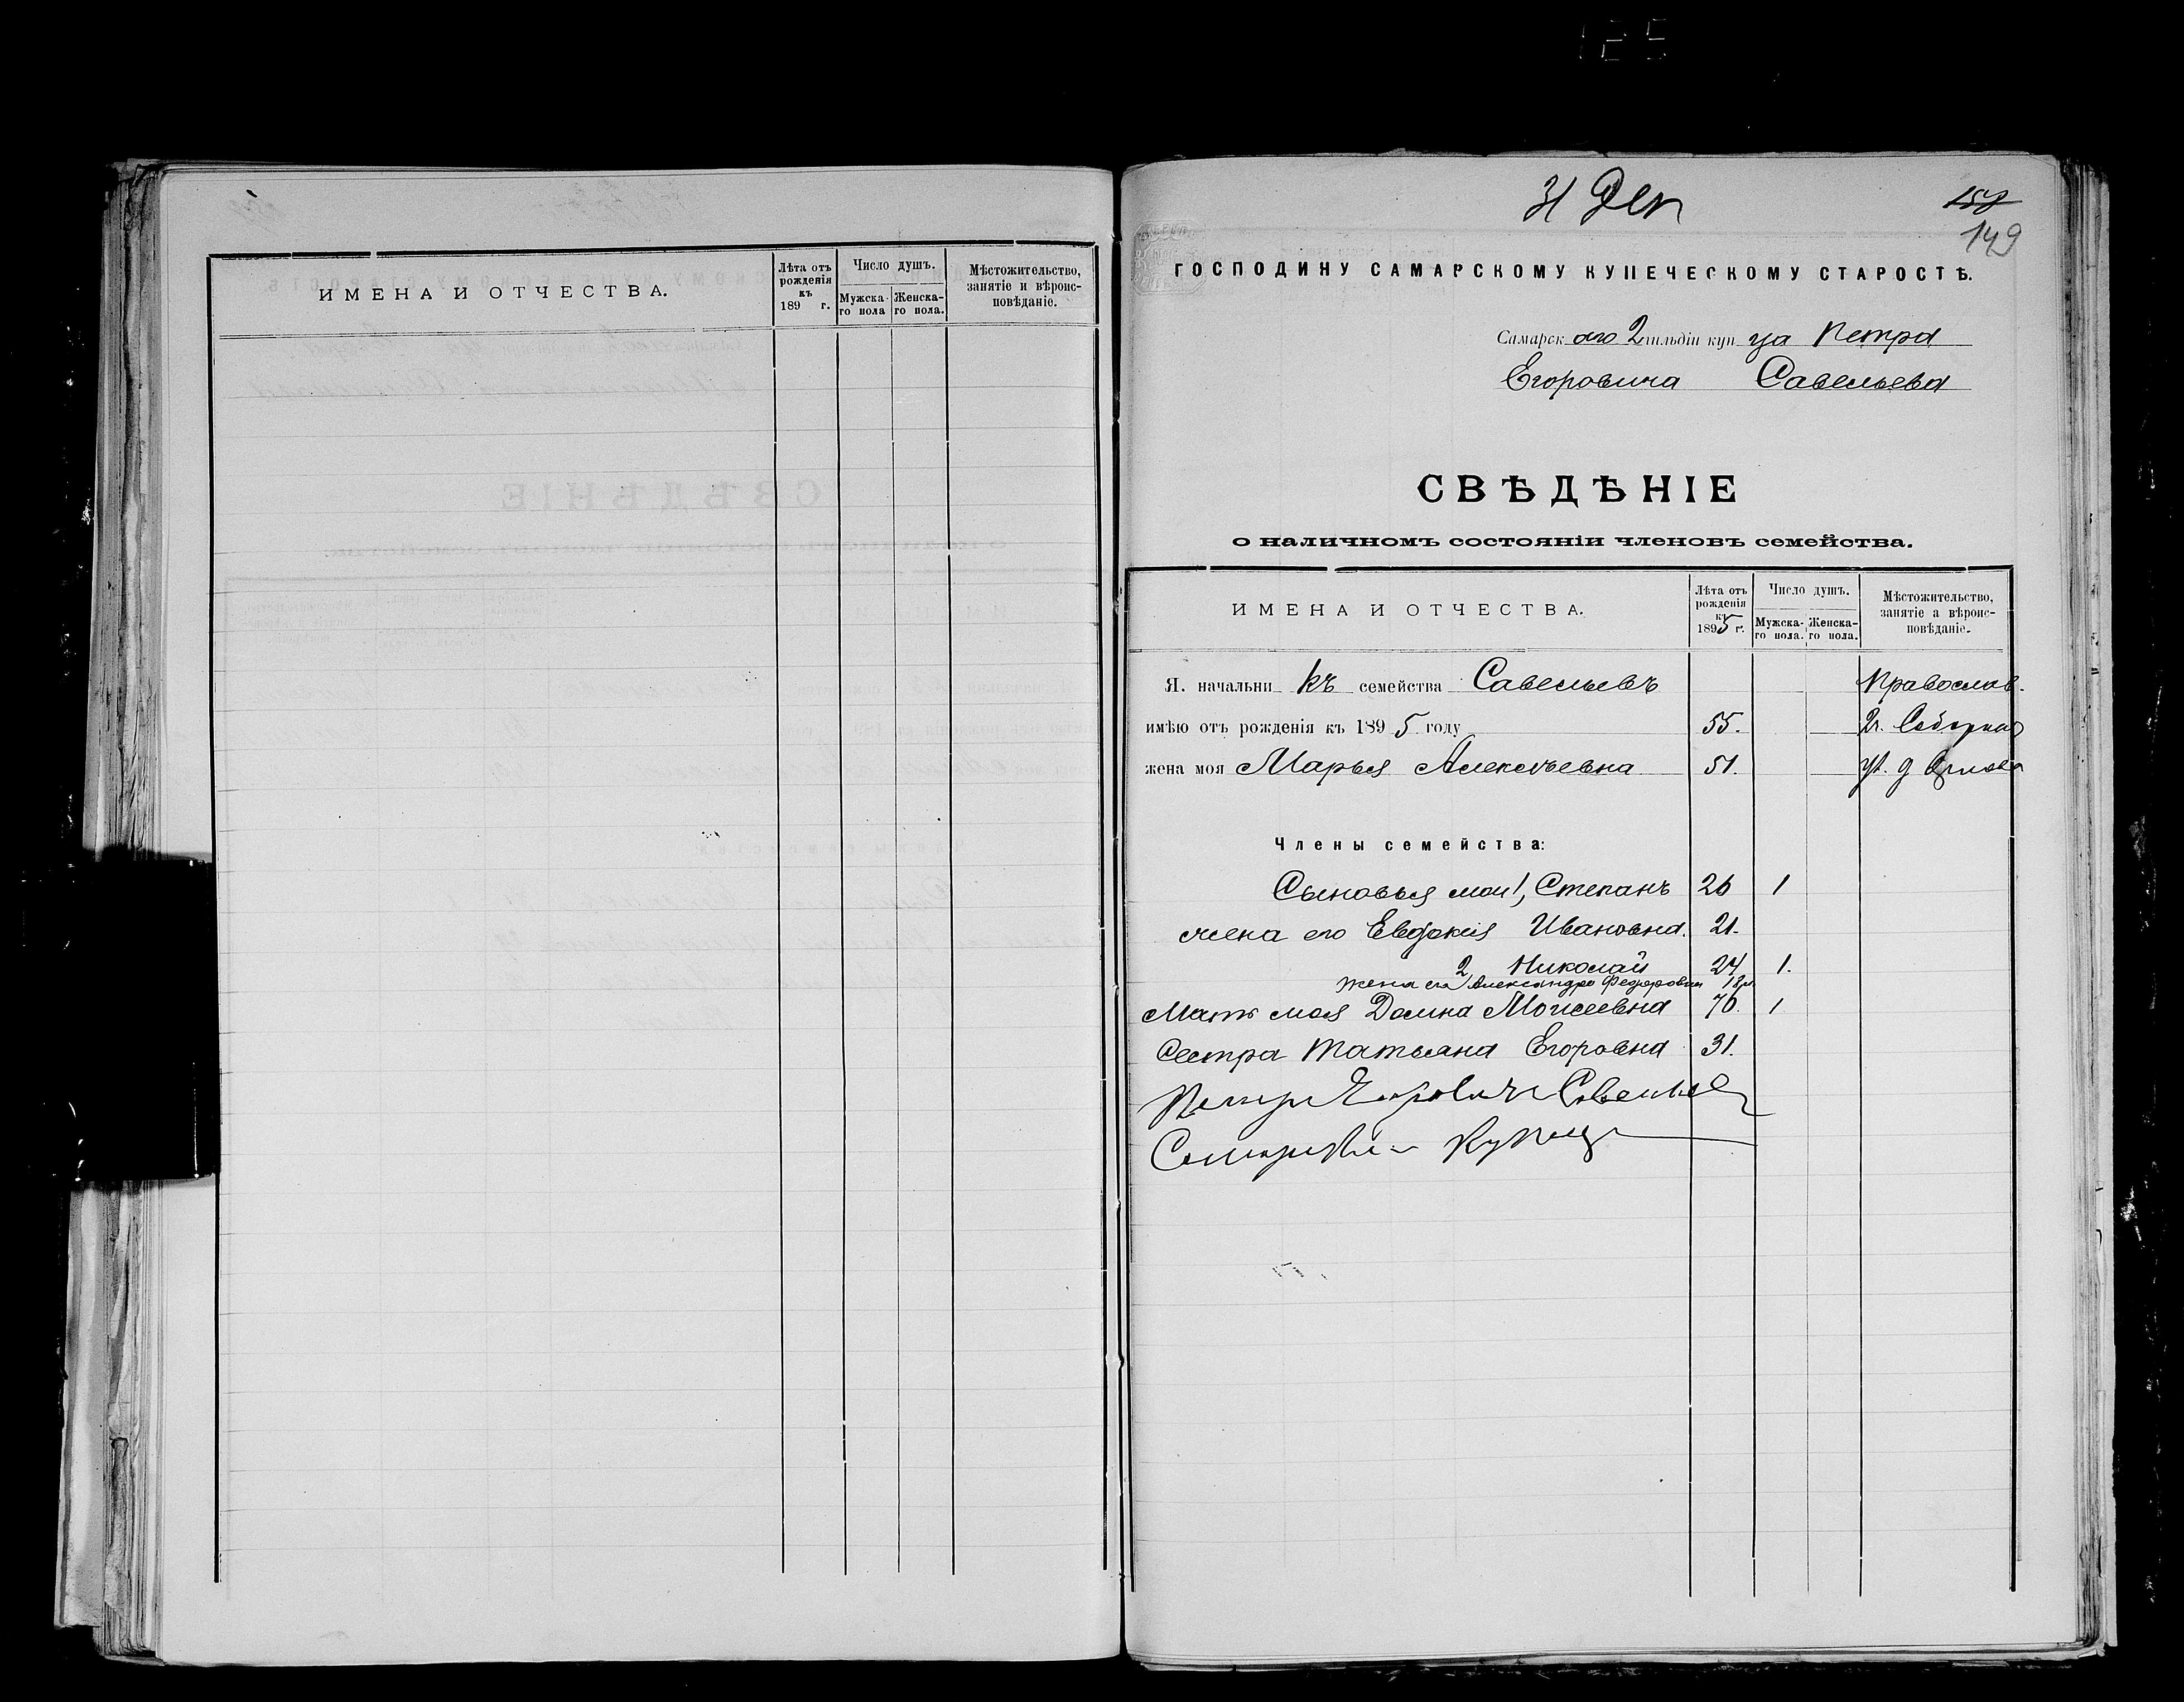 ИМЕНА И ОТЧЕСТВА.
Лѣта отъ рожденія къ 189 г.
Число душъ.
Мужска-го пола
Женска-го пола.
Мѣстожительство, занятіе и вѣроис-повѣданіе.
31 Дек
158
149
ГОСПОДИНУ САМАРСКОМУ КУПЕЧЕСКОМУ СТАРОСТѢ.
Самарск аго 2 гильдіи куп ца Петра
Егоровича Савельева
СВѢДѢНІЕ
о наличномъ состояніи членовъ семейства.
ИМЕНА И ОТЧЕСТВА.
Лѣта отъ рожденія къ 1895 г.
Число душъ.
Мужска-го пола.
Женска-го пола.
Мѣстожительство, занятіе а вѣроис-повѣданіе.
Я. начальни къ семейства Савельевъ Православ.
имѣю отъ рожденія къ 1895 году 55. Соборная
жена моя Марья Алексѣевна 51. ул. д
Члены семейства:
Сыновья мои 1, Степанъ 26 1
жена его Евдокія Ивановна. 21.
2 Николай 24 1.
жена его Александра Федоровна 18 л.
Мать моя Домна Моисеевна 70. 1
Сестра Татьяна Егоровна 31.
Петръ Егоровичъ Савельев
Самарскій Купецъ